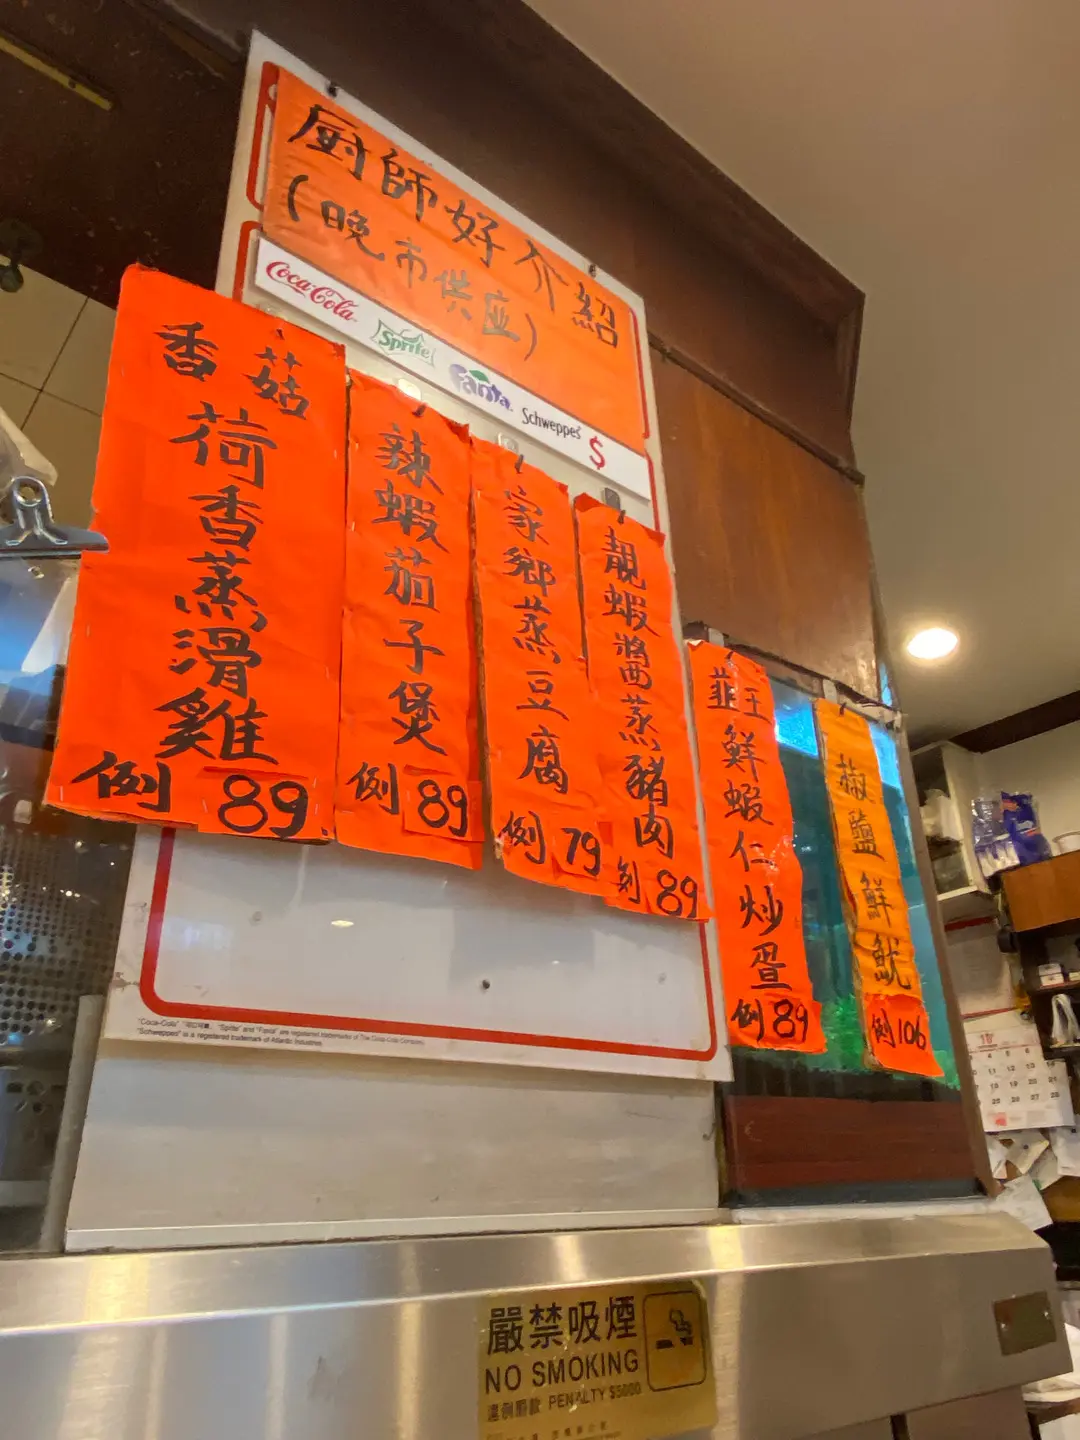 厨師好介紹
(晚市供应)
Coca-Cola
Sprite
Fanta
Schweppes
$
香菇
荷香蒸滑雞
例 89
辣蝦茄子煲
例 89
家鄉蒸豆腐
例 79
靚蝦醬蒸豬肉
例 89
韮王鮮蝦仁炒蛋
例 89
椒鹽鮮魷
例 106
"Coca-Cola" "可口可樂", "Sprite" and "Fanta" are registered trademarks of The Coca-Cola Company.
"Schweppes" is a registered trademark of Atlantic Industries.
嚴禁吸煙
NO SMOKING
違例罰款 PENALTY $5000